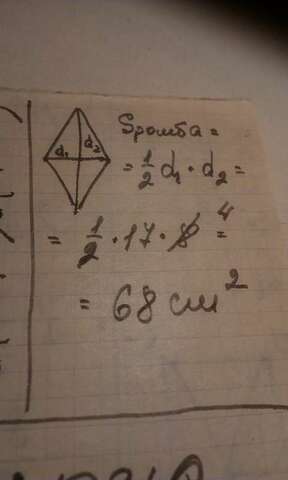 d₁ d₂
Sромба =
= 1/2 d₁ · d₂ =
= 1/2 · 17 · 8 4 =
= 68 см²